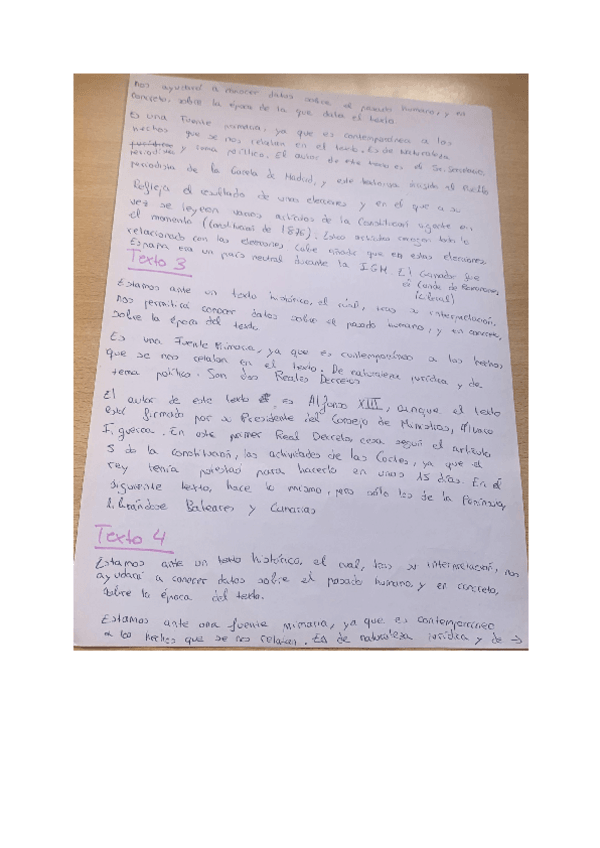 nos ayudará a conocer datos sobre el pasado humano, y en
concreto, sobre la época de la que data el texto.
Es una Fuente primaria, ya que es contemporánea a los
hechos que se nos relatan en el texto. Es de naturaleza
periodística y tema político. El autor de este texto es el Sr.
periodista de la Gaceta de Madrid, y este
Refleja el resultado de unas elecciones y en el que a su
vez se leyeron varios artículos de la Constitución vigente en
el momento (Constitución de 1876). Estos artículos todo lo
relacionado con las elecciones. Cabe añadir que en estas elecciones,
España era un país neutral durante la IGM. El Ganador fue
el Conde de Romanones,
(liberal)
Texto 3
Estamos ante un texto histórico, el cual, tras su interpretación,
nos permitirá conocer datos sobre el pasado humano, y en concreto,
sobre la época del texto.
Es una Fuente Primaria, ya que es contemporáneo a los hechos
que se nos relatan en el texto. De naturaleza jurídica y de
tema político. Son dos Reales Decretos
El autor de este texto es Alfonso XIII, aunque el texto
está firmado por su Presidente del Consejo de Ministros, Álvaro
Figueroa. En este primer Real Decreto cesa según el artículo
5 de la constitución, las actividades de las Cortes, ya que el
rey tenía potestad para hacerlo en unos 15 días. En el
siguiente texto, hace lo mismo, pero sólo los de la Península,
librándose Baleares y Canarias
Texto 4
Estamos ante un texto histórico, el cual, tras su interpretación, nos
ayudará a conocer datos sobre el pasado humano, y en concreto,
sobre la época del texto.
Estamos ante una fuente primaria, ya que es contemporáneo
a los hechos que se nos relatan. Es de naturaleza jurídica y de →